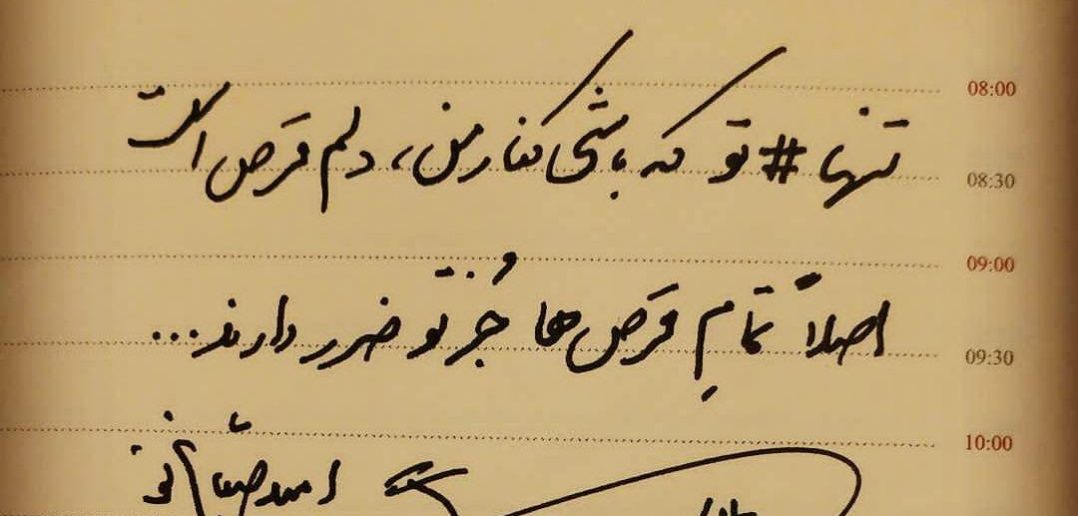 08:00
تنها #تو که باشی کنار من، دلم قرص است
08:30
09:00
اصلاً تمامِ قرص‌ها جُز تو ضرر دارند...
09:30
10:00
امید صباغ نو